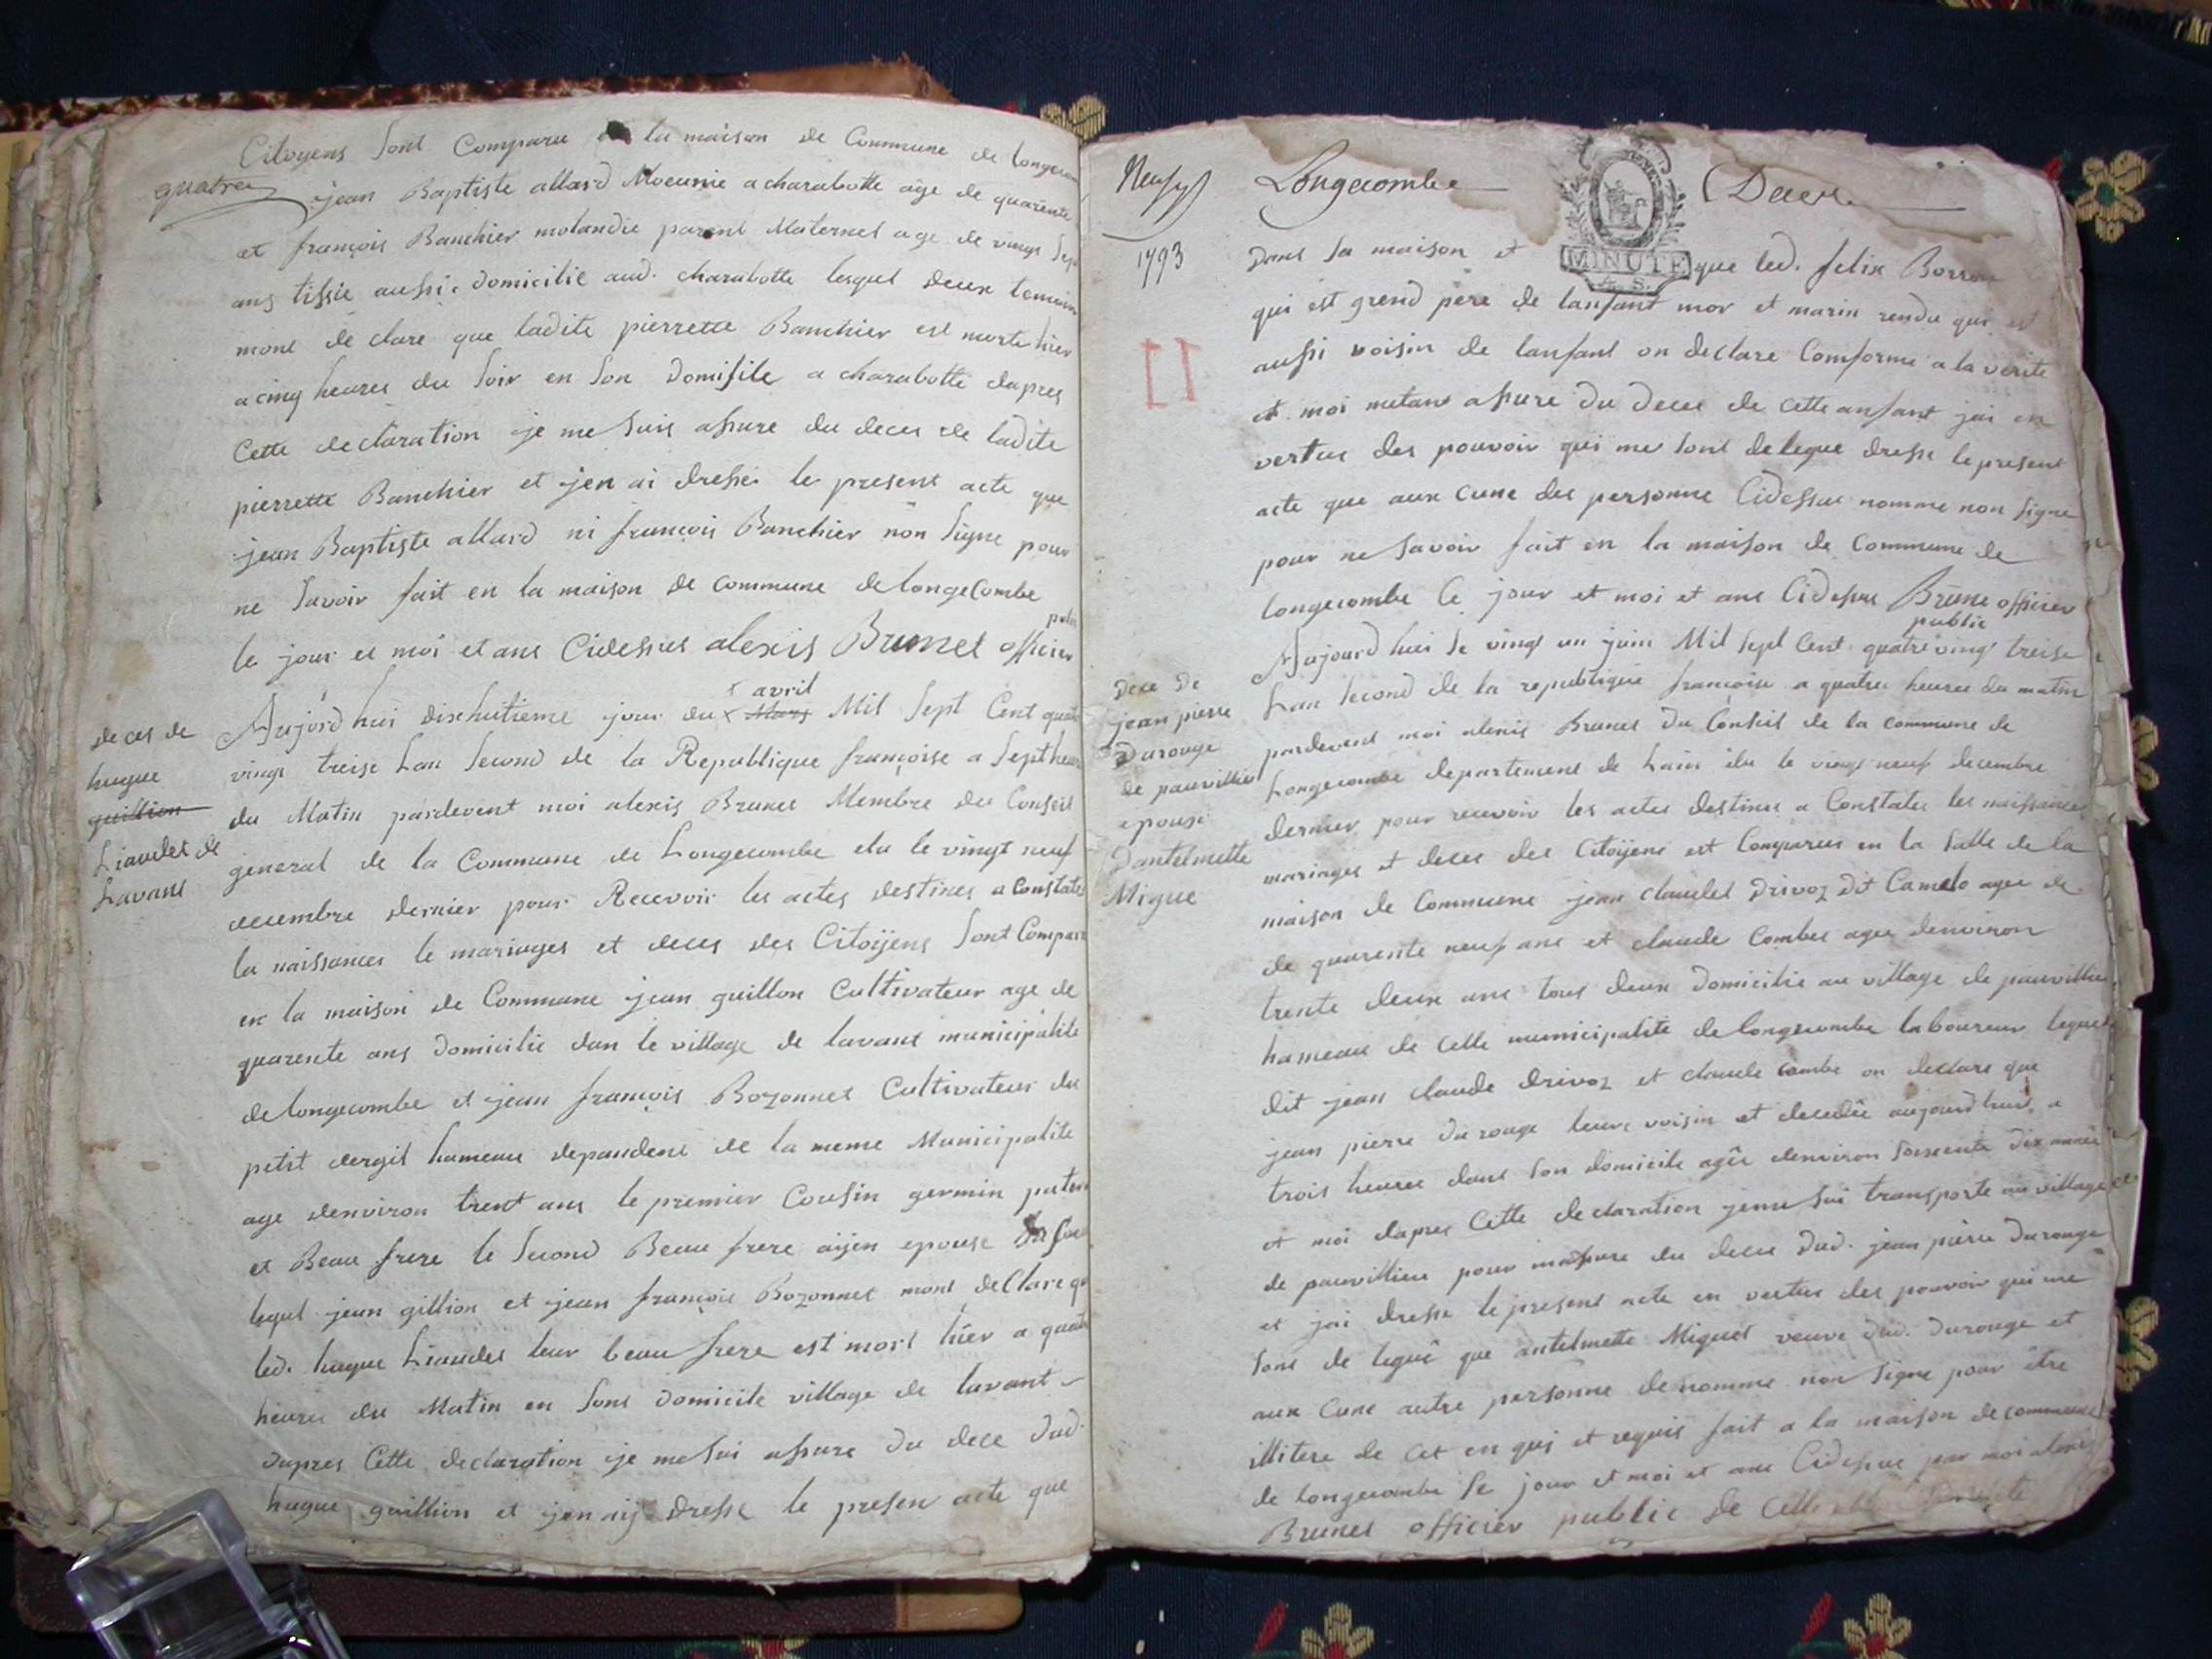 Citoyens sont Comparu en la maison de Commune de longecom
quatre
jean Baptiste allard Moeunie a charabotte age de quarente
et françois Banchier molandie parent Maternel age de vingt sept
ans tissie aussi domicilie aud. charabotte lesquel deux temoins
mont de clare que ladite pierrette Banchier est morte hier
a cinq heures du soir en son domisile a charabotte dapres
Cette declaration je me suis assure du deces de ladite
pierrette Banchier et jen ai dresse le present acte que
jean Baptiste allard ni françois Banchier non signe pour
ne savoir fait en la maison de commune de longeCombe
le jour et moi et ans Cidessus alexis Brunet officier
public
deces de
hugue
guillion
Liaudet de
Lavant
Aujord hui dixhuitieme jour du Mars Mil Sept Cent quatre
avril
vingt treise Lan second de la Republique françoise a Sept heure
du Matin pardevent moi alexis Brunet Membre du Conseil
general de la Commune de Longecombe elu le vingt neuf
decembre dernier pour Recevoir les actes destines a Constate
la naissances le mariages et deces des Citoÿens sont Compar
en la maison de Commune jean guillon Cultivateur age de
quarente ans domicilie dan le village de lavant municipalite
de longecombe et jean françois Bozonnet Cultivateur du
petit dergil hameau depandent de la meme Municipalite
age denviron trent ans le premier Cousin germin pater
et Beau frere le second Beau frere aijen epouse sa soeu
lequl jean gillion et jean françois Bozonnet mont deClare q
led. hugue Liaudet leur beau frere est mort hier a quatre
heures du Matin en sont domicile village de lavant
dapres Cette declaration je me sui assure du dece dud
hugue guillion et jen aij dresse le presen acte que
Neuf
Longecombe
MINUTE
A. S.
Deces
1793
dans sa maison et que led. felix Borron
qui est grend pere de lanfant mor et marin rendu qui est
aussi voisin de lanfant on declare Comforme a la verite
et moi metant assure du deces de cette anfant jai en
vertus des pouvoir qui me sont delegue dresse le present
acte que aux cune des personne Cidessus nomme non signe
pour ne savoir fait en la maison de Commune de
longecombe le jour et moi et ans Cidessus Brunet officier
public
Dece de
jean pierre
Durouge
de pauvillieu
epouse
dantelmette
Migue
Aujourd hui le vingt un juin Mil sept Cent quatre vingt treise
Lan second de la republique françoise a quatre heures du matin
pardevent moi alexis Brunet du Conseil de la commune de
Longecombe departement de Lain elu le vingt neuf decembre
dernier pour recevoir les actes destines a Constater les naissances
mariages et deces des Citoÿens est Comparus en la salle de la
maison de Commune jean claudet Drivoz dit Camelo agee de
de quarente neuf ans et claude Combet agee denviron
trente deux ans tous deux domicilie au village de pauvillieu
hameau de cette municipalite de longecombe laboureur lequel
dit jean claude drivoz et claude combe on declare que
jean pierre durouge leurs voisin et decedée aujourdhui a
trois heures dans son domicile agée denviron soixente dix année
et moi dapres Cette declaration jeme sui transporte au village
de pauvillieu pour massure du deces dud. jean pierre durouge
et jai dresse le present acte en vertus des pouvoir qui me
sont de legué que antelmette Miguet veuve dud. durouge et
aux Cune autre personne denomme non signe pour être
illitere de cet en qui et requis fait a la maison de commune
de longecombe le jour et moi et ans Cidessus par moi alexis
Brunet officier public de